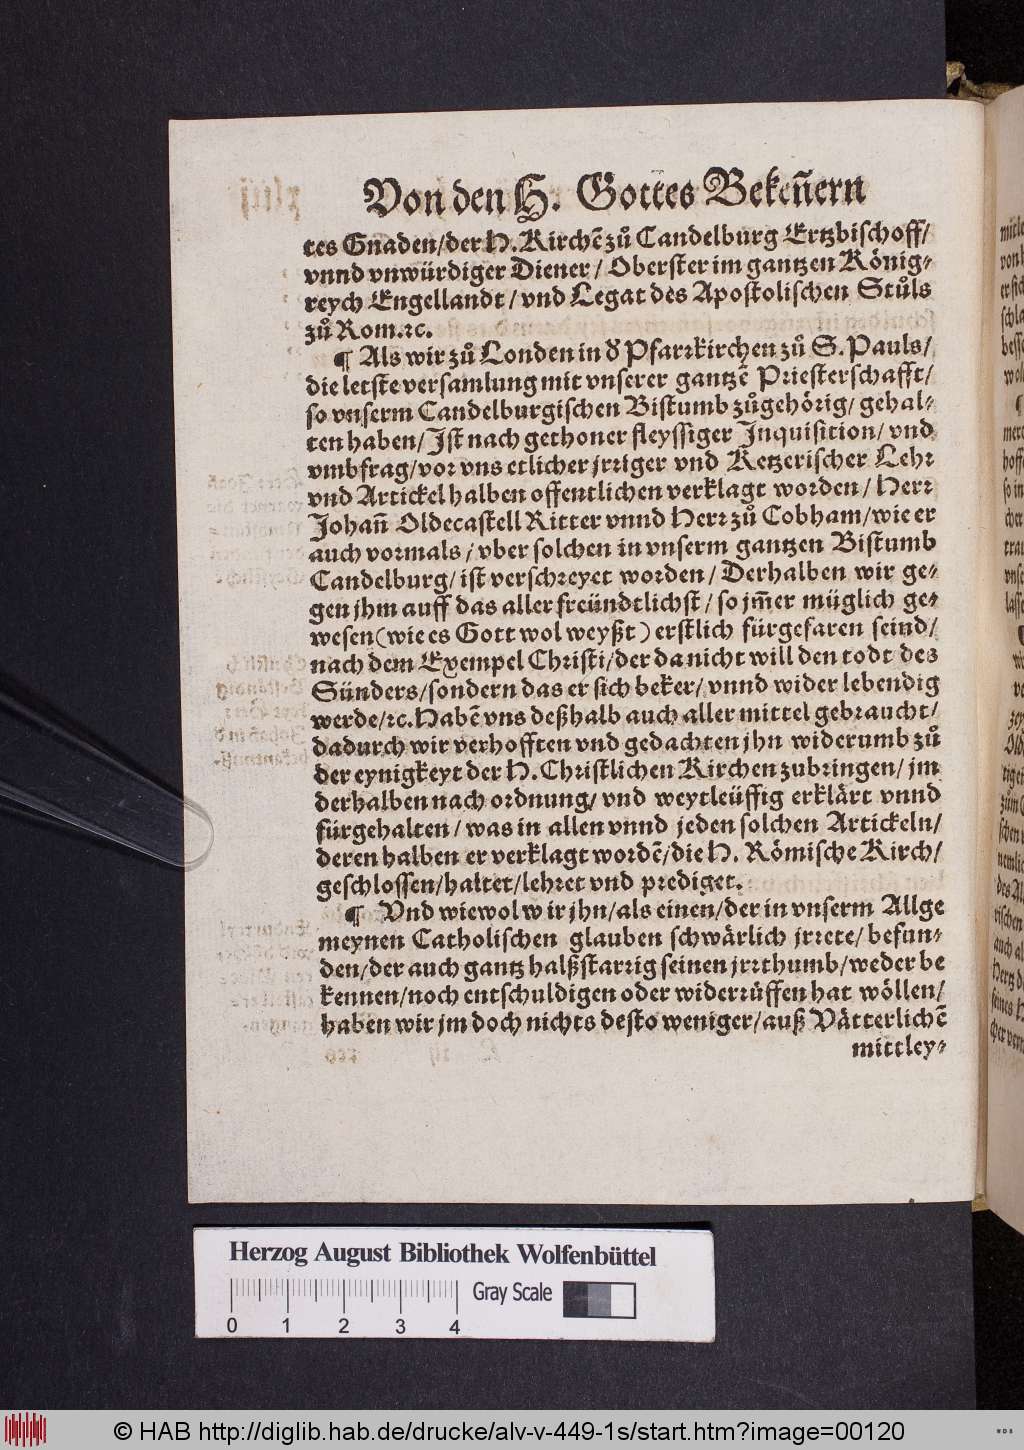 Von den H. Gottes Bekeñern
tes Gnaden/der H. Kirchẽ zů Candelburg Ertzbischoff/
vnnd vnwürdiger Diener/ Oberster im gantzen König-
reych Engellandt/ vnd Legat des Apostolischen Stůls
zů Rom.ꝛc.
¶ Als wir zů Londen in ď Pfarrkirchen zů S. Pauls/
die letste versamlung mit vnserer gantzẽ Priesterschafft/
so vnserm Candelburgischen Bistumb zůgehörig/ gehal-
ten haben/ Ist nach gethoner fleyssiger Inquisition/ vnd
vmbfrag/vor vns etlicher jrriger vnd Ketzerischer Lehr
vnd Artickel halben offentlichen verklagt worden/ Herr
Johañ Oldecastell Ritter vnnd Herr zů Cobham/wie er
auch vormals/ vber solchen in vnserm gantzen Bistumb
Candelburg/ ist verschreyet worden/ Derhalben wir ge-
gen jhm auff das aller freündtlichst/ so jm̃er müglich ge-
wesen(wie es Gott wol weyßt) erstlich fürgefaren seind/
nach dem Exempel Christi/der da nicht will den todt des
Sünders/sondern das er sich beker/ vnnd wider lebendig
werde/ꝛc. Habẽ vns deßhalb auch aller mittel gebraucht/
dadurch wir verhofften vnd gedachten jhn widerumb zů
der eynigkeyt der H. Christlichen Kirchen zubringen/ jm
derhalben nach ordnung/ vnd weytleüffig erklärt vnnd
fürgehalten/ was in allen vnnd jeden solchen Artickeln/
deren halben er verklagt wordẽ/die H. Römische Kirch/
geschlossen/haltet/lehret vnd prediget.
¶ Vnd wiewol wir jhn/als einen/der in vnserm Allge
meynen Catholischen glauben schwärlich jrrete/ befun-
den/der auch gantz halßstarrig seinen jrrthumb/weder be
kennen/noch entschuldigen oder widerrüffen hat wöllen/
haben wir jm doch nichts desto weniger/auß Vätterlichẽ
mittley-
Herzog August Bibliothek Wolfenbüttel
Gray Scale
0 1 2 3 4
© HAB http://diglib.hab.de/drucke/alv-v-449-1s/start.htm?image=00120